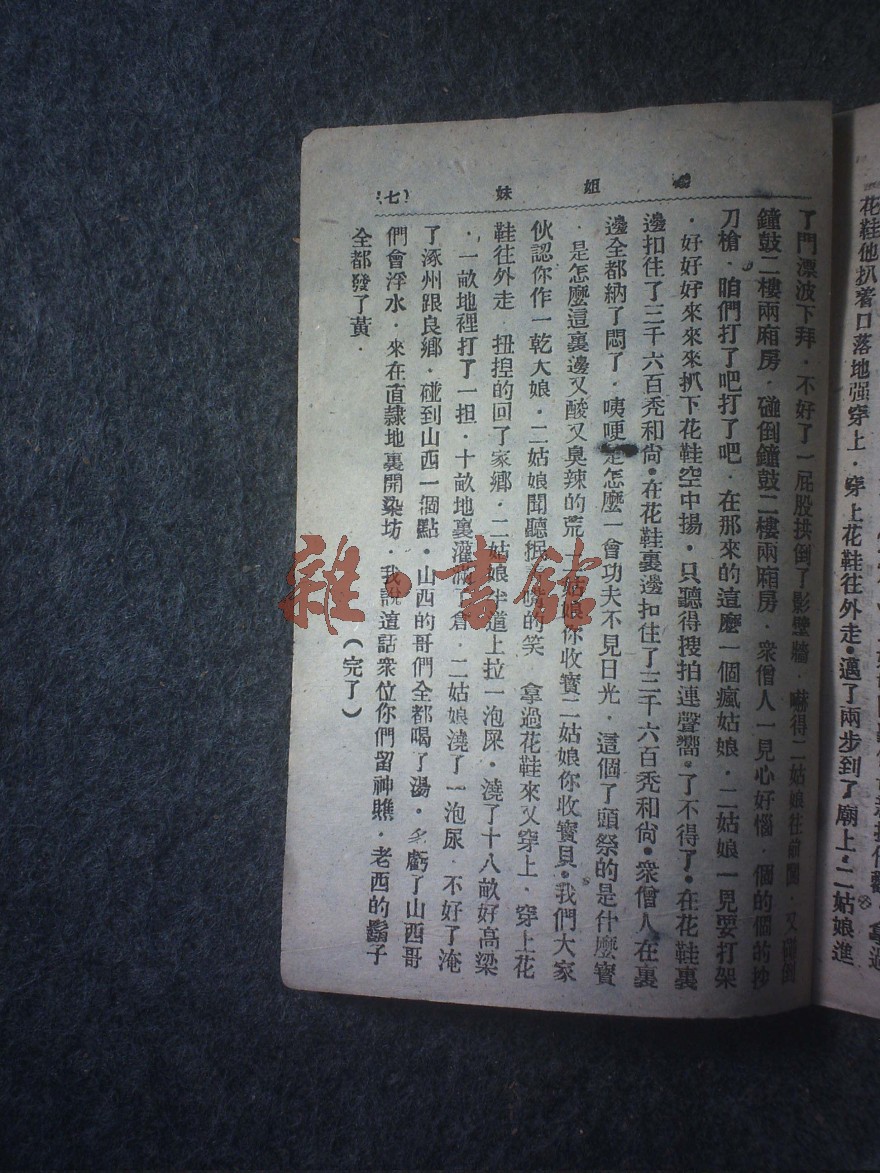 花鞋他扒着口落地强穿上．穿上花鞋往外走●邁了兩步到了廟上●二姑娘進
姐妹
（七）
了門漂波下拜．不好了一屁股拱倒了影壁牆．嚇得二姑娘往前闖．又碰倒
鐘鼓二樓兩廂房．碰倒鐘鼓二樓兩廂房．衆僧人一見心好惱．個的個的抄
刀槍．咱們打了吧打了吧．在那來的這麼一個瘋姑娘．二姑娘一見要打架
．好好好來來來扒下花鞋空中揚．只聽得搜拍連聲嚮●了不得了●在花鞋裏
邊扣住了三千六百秃和尚●在花鞋裏邊扣住了三千六百秃和尚●衆僧人在裏
邊全都納了悶了．咦哽是怎麼一會功夫不見日光．這個了頭祭的是什麼寶
．是怎麼這裏邊又酸又臭辣的荒二姑娘你收寶二姑娘你收寶貝●我們大家
伙認你作一乾大娘．二姑娘聞聽抿嘴的笑　拿過花鞋來又穿上．穿上花
鞋往外走　扭揑的回了家鄉．二姑娘半道上拉一泡屎．澆了十八畝好高梁
．一畝地裡打了一担．十畝地裏灌滿了倉．二姑娘澆了一泡尿．不好了淹
了涿州跟良鄉．碰到山西一個點●山西的哥們全都喝了湯．多虧了山西哥
們會浮水．來在直隷地裏開染坊．我說這話衆位你們留神瞧．老西的鬍子
全都發了黃．
（完了）
雜·書館